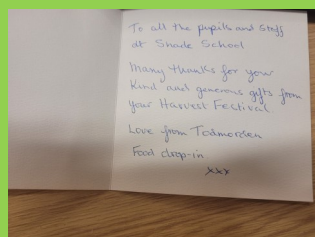 To all the pupils and staff
at Shade School
Many thanks for your
kind and generous gifts from
your Harvest Festival
Love from Todmorden
Food drop-in
xxx